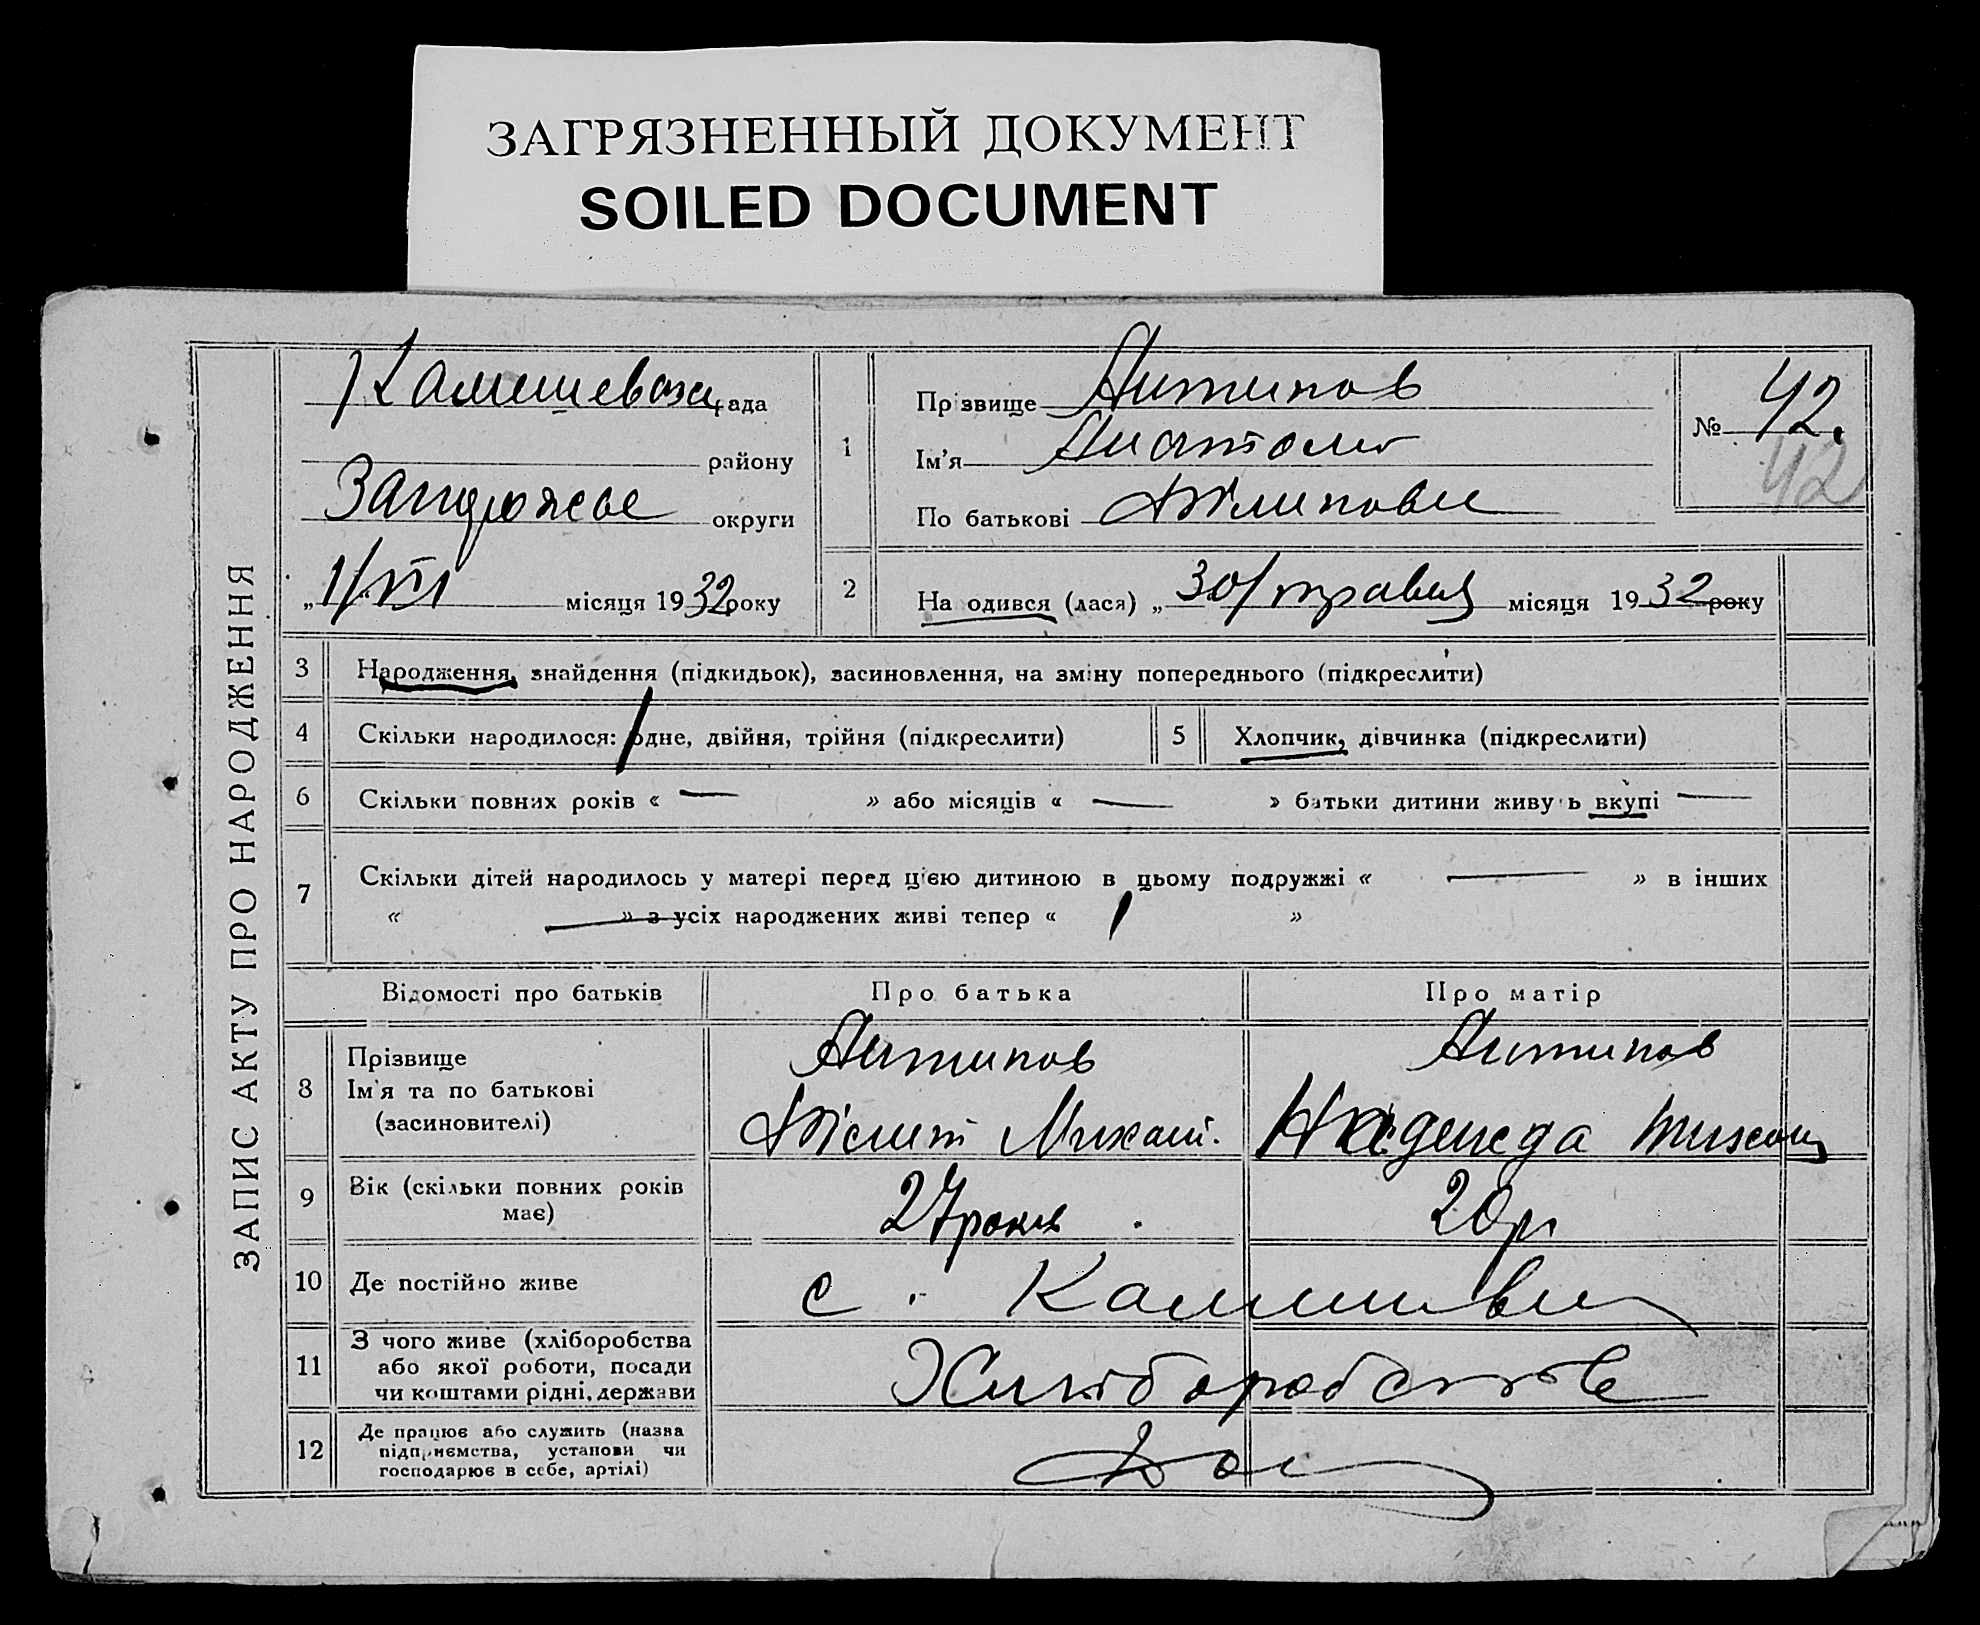 ЗАГРЯЗНЕННЫЙ ДОКУМЕНТ
SOILED DOCUMENT
ЗАПИС АКТУ ПРО НАРОДЖЕННЯ
рада
району
округи
„1/VI місяця 1932 року
1
Прізвище Антипов
Ім'я Анатолій
По батькові
№ 42.
42
2 На одився (лася) „30/травня місяця 1932 року
3 Народження, знайдення (підкидьок), засиновлення, на зміну попереднього (підкреслити)
4 Скільки народилося: одне, двійня, трійня (підкреслити) 5 Хлопчик, дівчинка (підкреслити)
6 Скільки повних років « — » або місяців « — » батьки дитини живуть вкупі —
7 Скільки дітей народилось у матері перед цією дитиною в цьому подружжі « — » в інших
« — » з усіх народжених живі тепер « 1 »
Відомості про батьків Про батька Про матір
8 Прізвище Антипов Антипов
Ім'я та по батькові
(засиновителі) Михайл. Надежда
9 Вік (скільки повних років має) 27 років 20 р.
10 Де постійно живе с.
11 З чого живе (хліборобства
або якої роботи, посади
чи коштами рідні, держави Хліборобство
12 Де працює або служить (назва
підприємства, установи чи
господарює в себе, артілі)